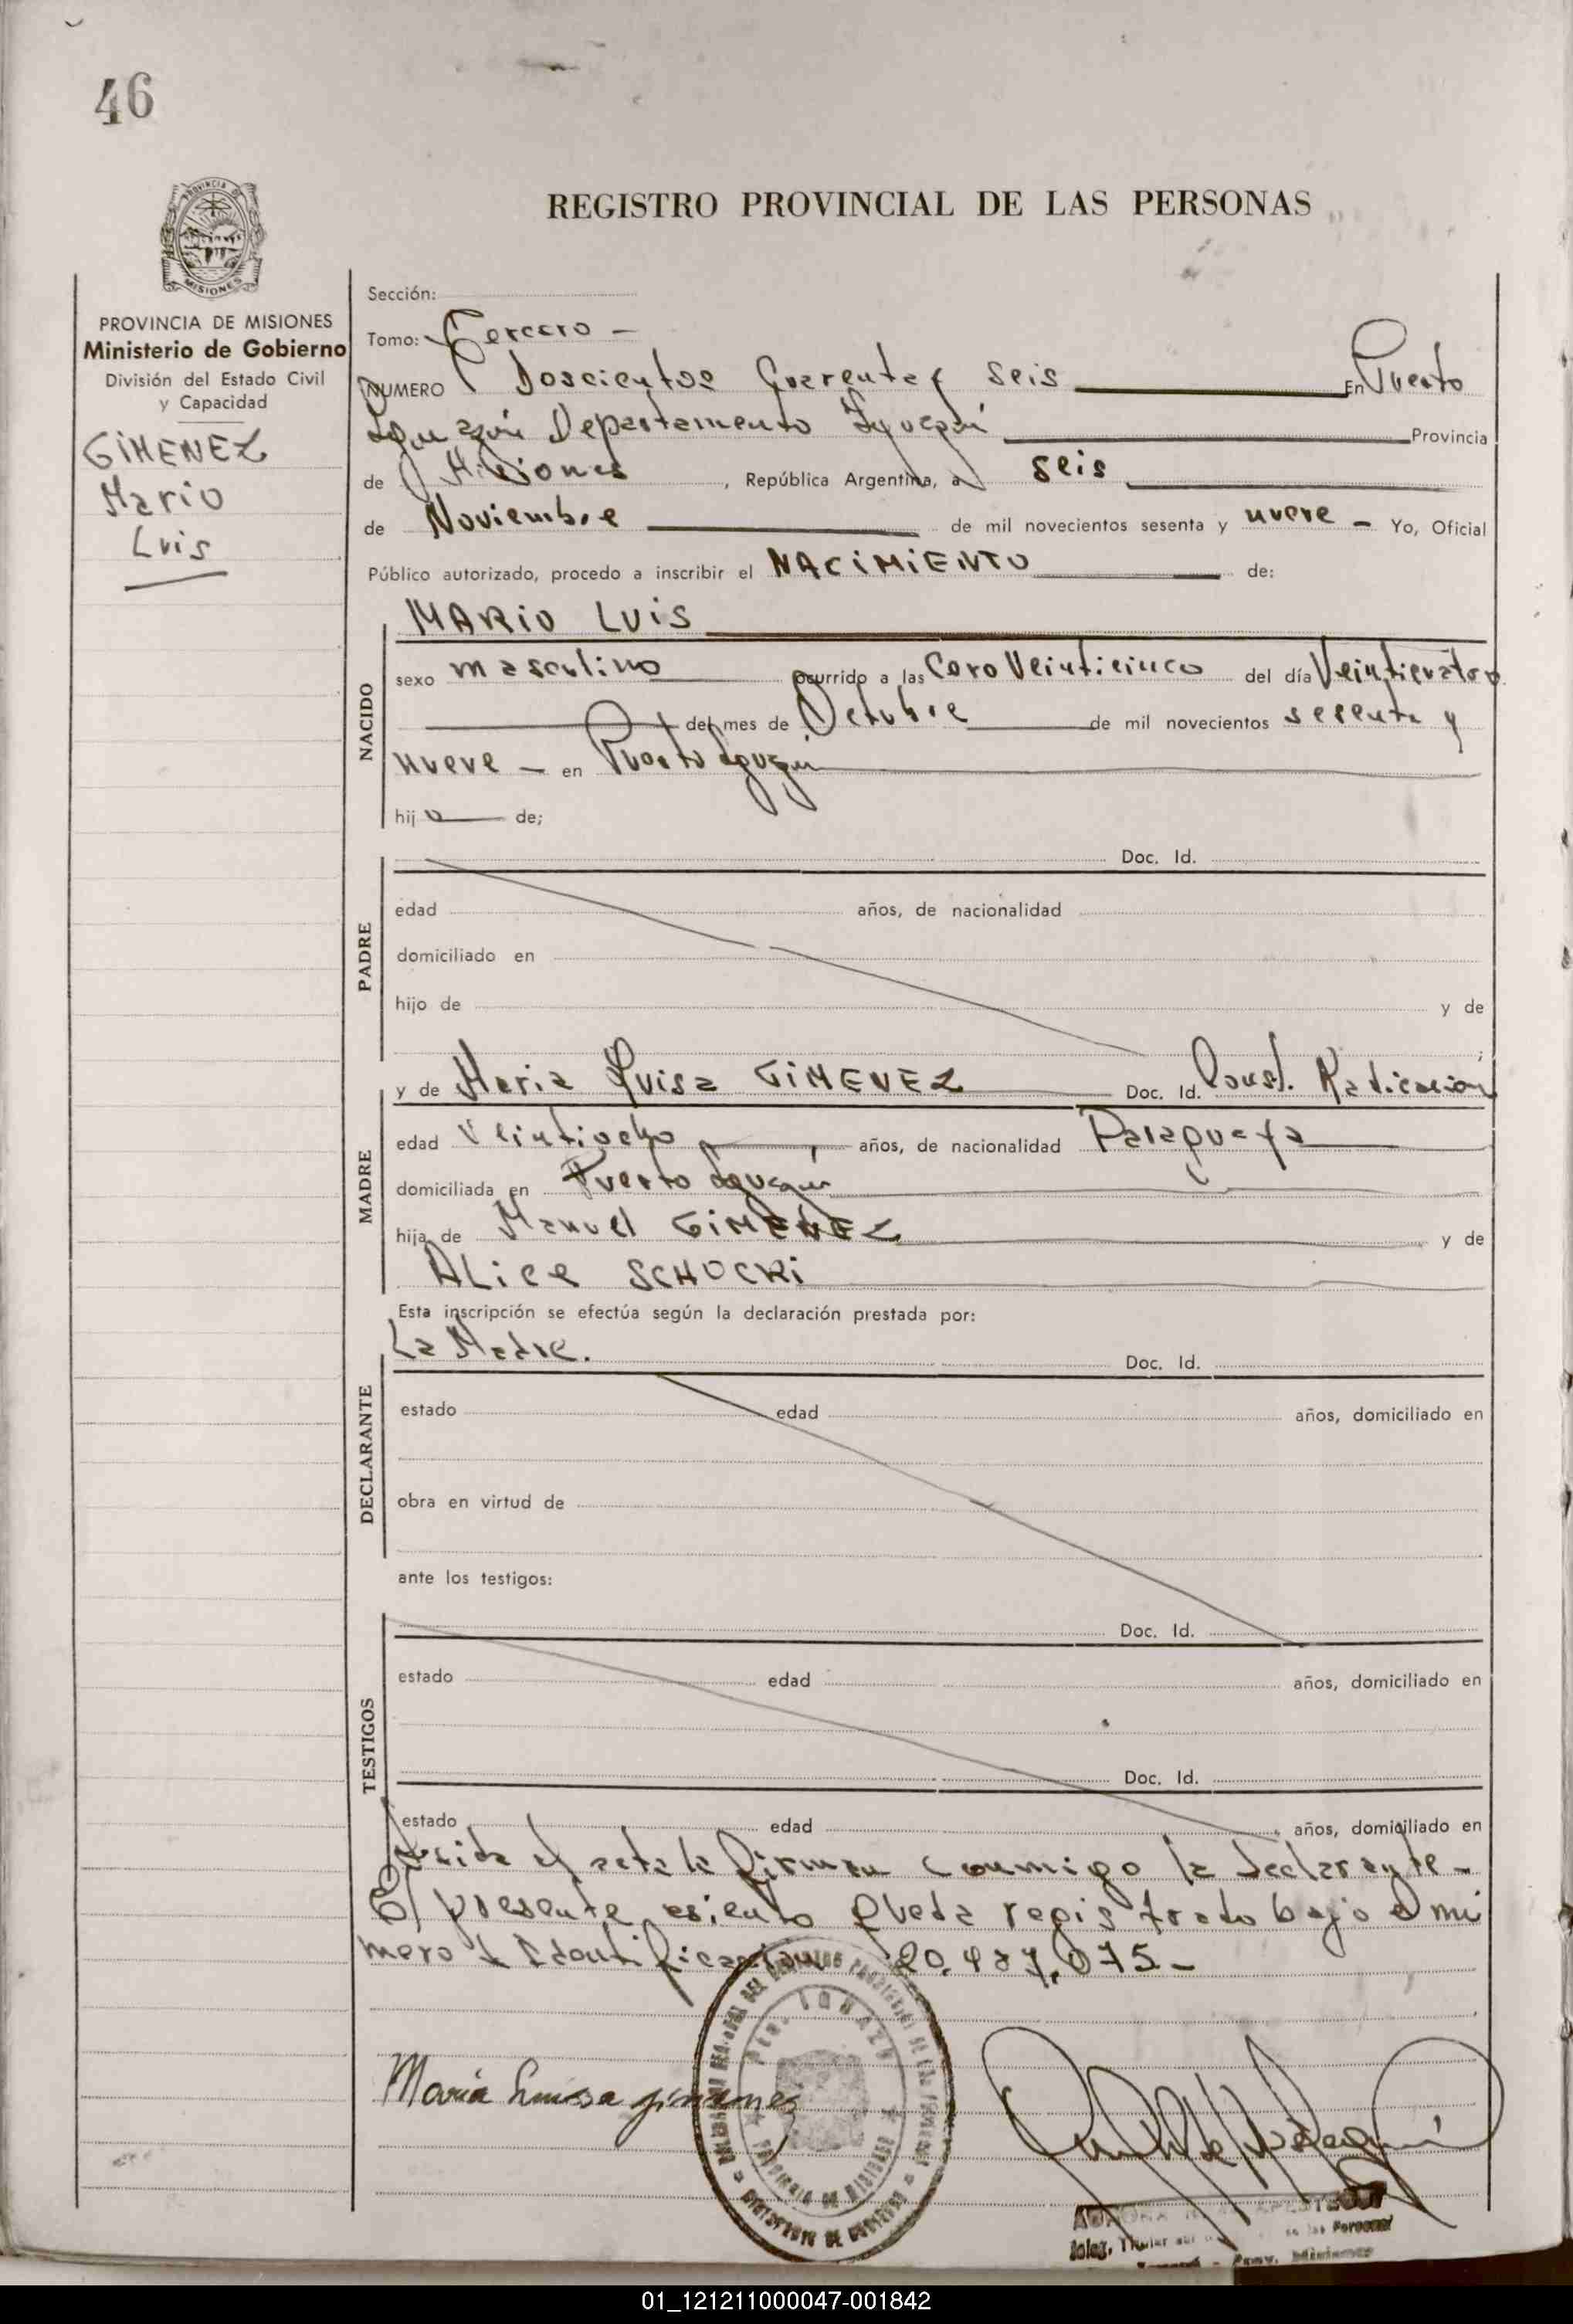 46
REGISTRO PROVINCIAL DE LAS PERSONAS
MISIONES
PROVINCIA DE MISIONES
Ministerio de Gobierno
División del Estado Civil
y Capacidad
GIMENEZ
Mario
Luis
Sección:
Tomo: Tercero -
NUMERO Doscientos Cuarenta y seis En Puerto
Iguazú Departamento Iguazú Provincia
de Misiones, República Argentina, a seis
de Noviembre de mil novecientos sesenta y nueve - Yo, Oficial
Público autorizado, procedo a inscribir el NACIMIENTO de:
NACIDO
MARIO LUIS
sexo masculino ocurrido a las Cero Veinticinco del día Veinticuatro
del mes de Octubre de mil novecientos sesenta y
nueve - en Puerto Iguazú
hijo de;
PADRE
Doc. Id.
edad años, de nacionalidad
domiciliado en
hijo de y de
;
MADRE
y de Maria Luisa GIMENEZ Doc. Id. Const. Radicación
edad Veintiocho años, de nacionalidad Paraguaya
domiciliada en Puerto Iguazú
hija de Manuel GIMENEZ y de
ALice SCHOCRI
Esta inscripción se efectúa según la declaración prestada por:
DECLARANTE
La Madre. Doc. Id.
estado edad años, domiciliado en
obra en virtud de
ante los testigos:
TESTIGOS
Doc. Id.
estado edad años, domiciliado en
Doc. Id.
estado edad años, domiciliado en
Leida el acta la firman conmigo la declarante -
El presente asiento queda registrado bajo el nú
mero de Identificación 20.487.075 -
Pto. IGUAZU
PROVINCIA DE MISIONES
Maria Luisa gimenes
01_121211000047-001842